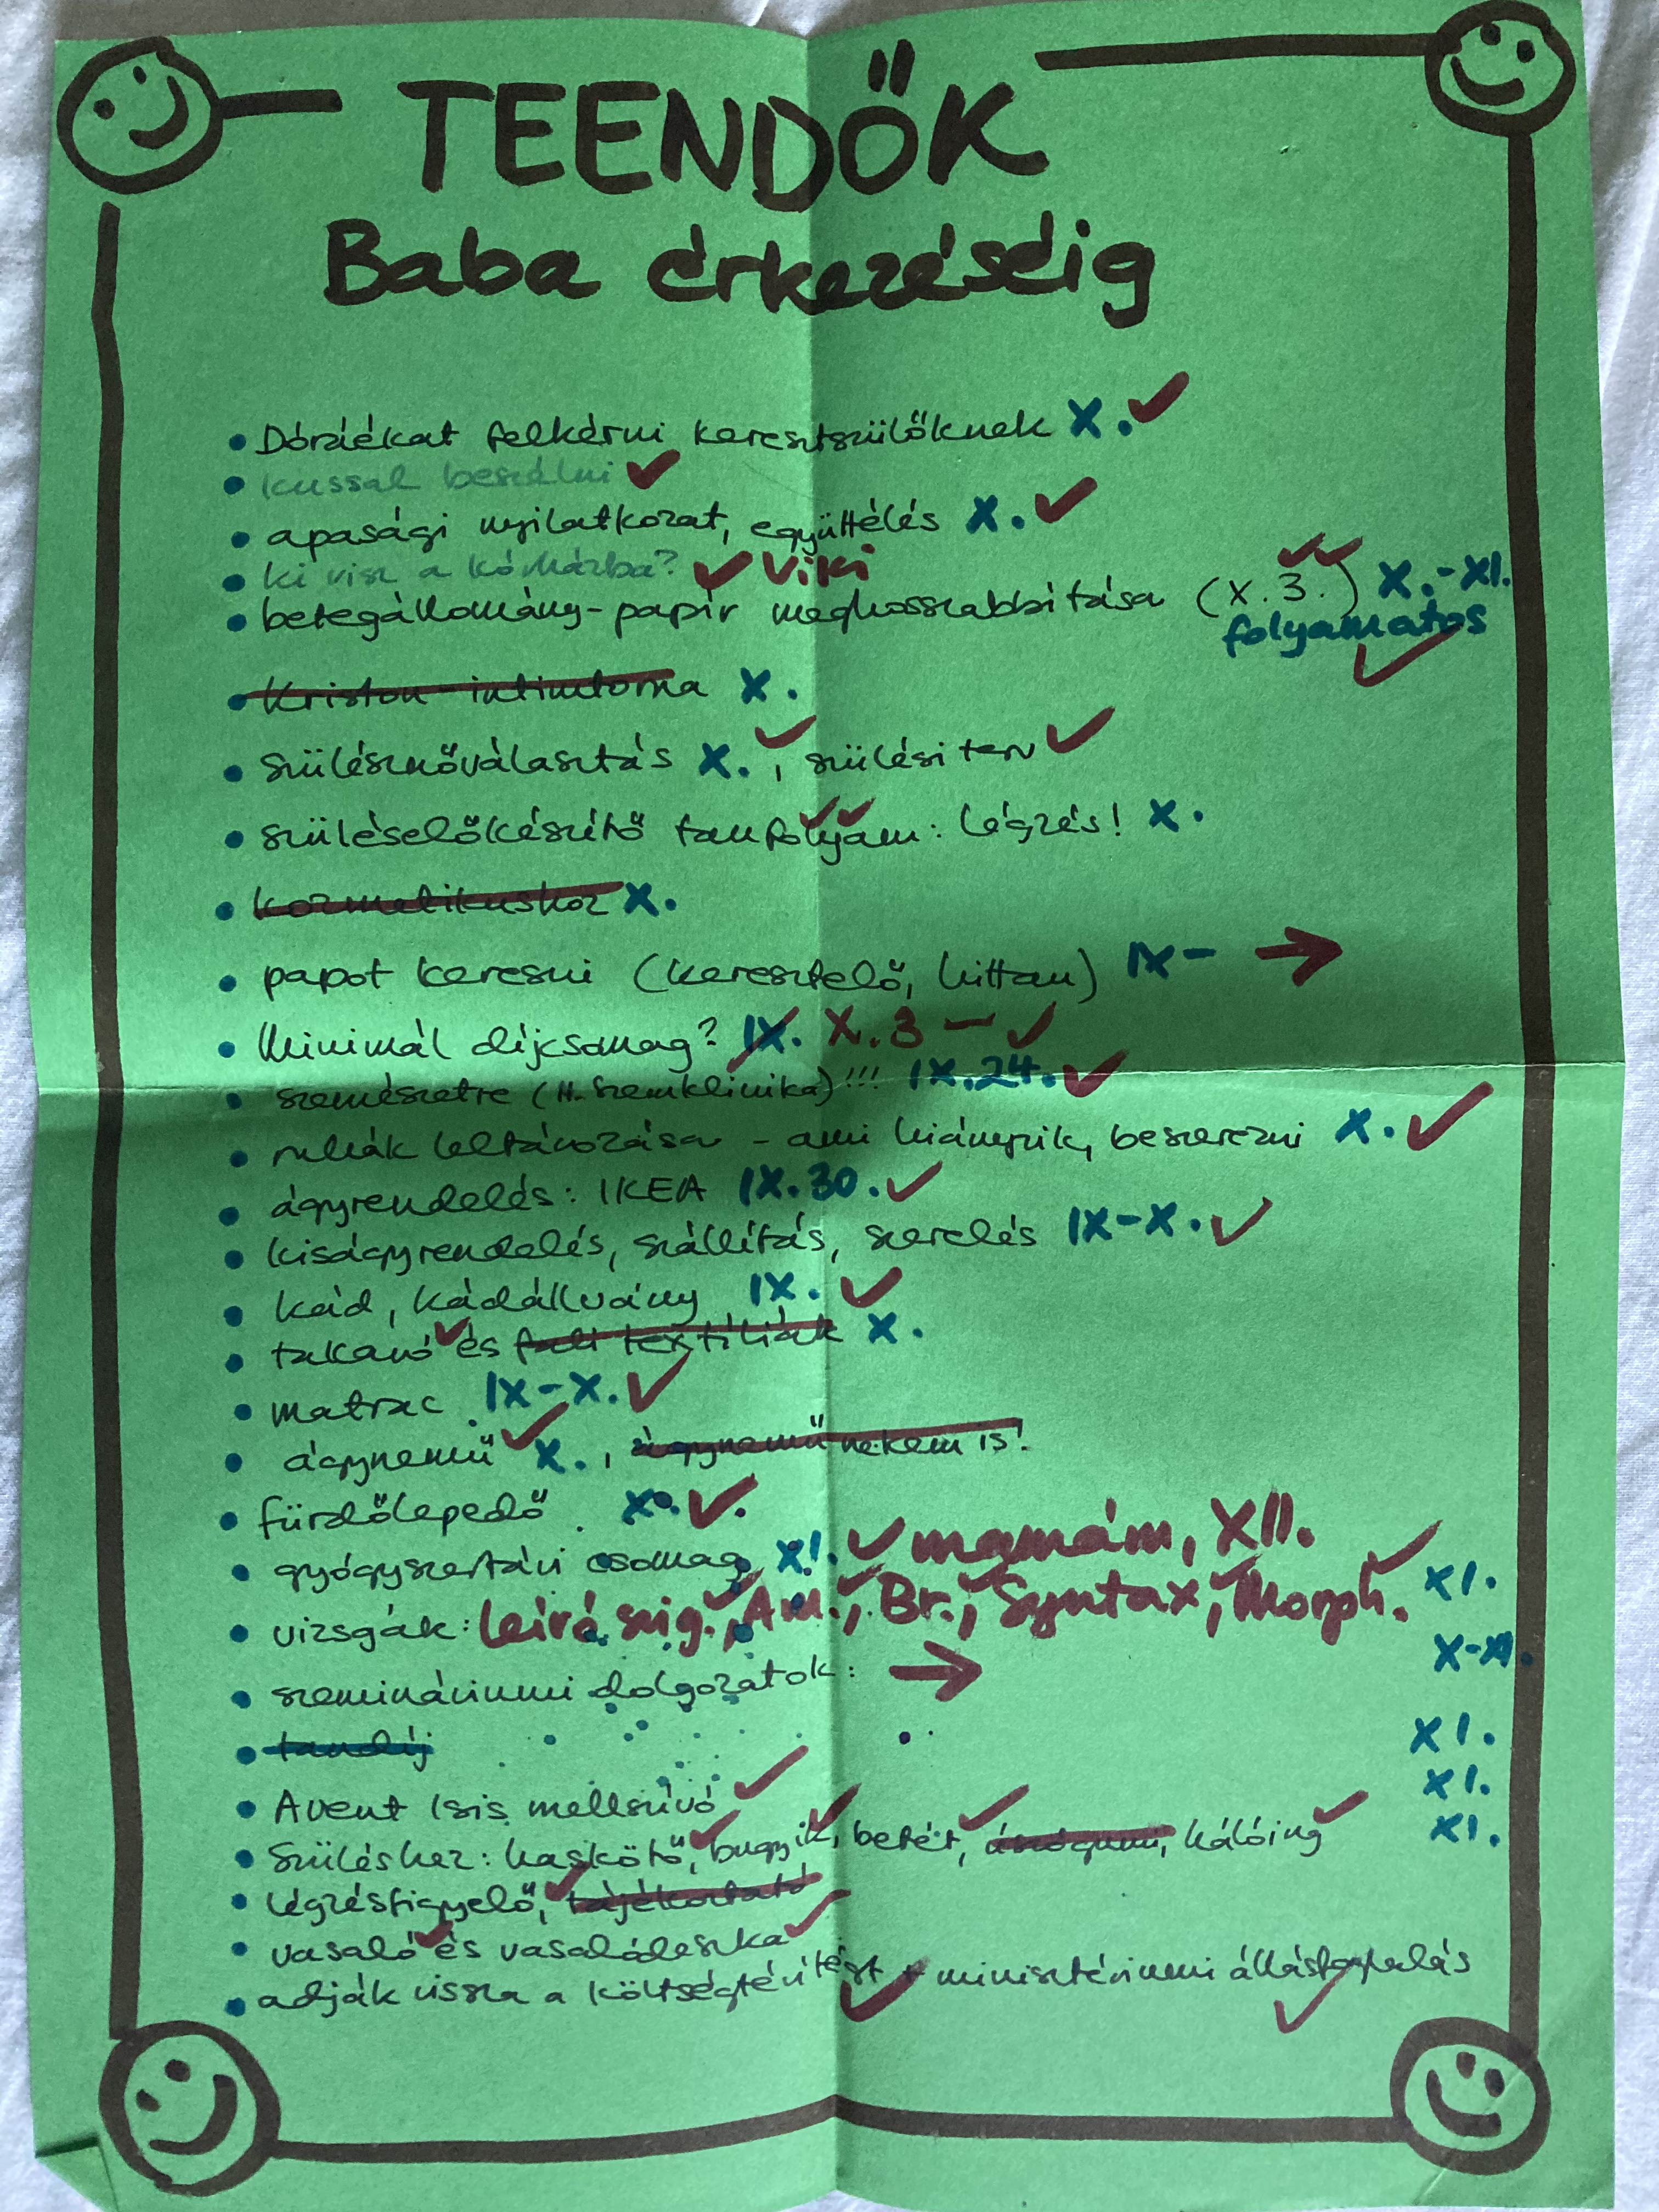 TEENDŐK
Baba érkezéséig
• Dóráékat felkérni keresztszülőknek X. ✓
• kussal beszélni ✓
• apasági nyilatkozat, együttélés X. ✓
• ki visz a kórházba? ✓ Viki
• betegállomány-papír meghosszabbítása (X.3.) ✓✓ X.-XI.
folyamatos ✓
• Kriston-intimtorna X.
• szülésznőválasztás X. ✓, szülési terv ✓
• szüléselőkészítő tanfolyam: légzés! ✓✓ X.
• kozmetikushoz X.
• papot keresni (keresztelő, hittan) IX- →
• Minimál díjcsomag? IX. X.3 - ✓
• szemészetre (H. Szemklinika)!!! IX.24. ✓
• ruhák leltározása - ami hiányzik, beszerezni X. ✓
• ágyrendelés: IKEA IX.30. ✓
• kiságyrendelés, szállítás, szerelés IX-X. ✓
• kád, kádállvány IX. ✓
• takaró ✓ és fali textíliák X.
• matrac IX-X. ✓
• ágynemű ✓ X., ágynemű nekem is!
• fürdőlepedő X. ✓
• gyógyszertári csomag XI. ✓ mamám, XII.
• vizsgák: leíró szig. ✓, Am. ✓, Br. ✓, Syntax ✓, Morph. ✓ XI.
• szemináriumi dolgozatok: → X-XI.
• tandíj XI.
• Avent Isis mellszívó ✓ XI.
• Szüléshez: haskötő ✓, bugyik ✓, betét ✓, hálóing ✓ XI.
• légzésfigyelő ✓, tájékoztató
• vasaló ✓ és vasalódeszka ✓
• adják vissza a költségtérítést ✓ + minisztériumi állásfoglalás ✓